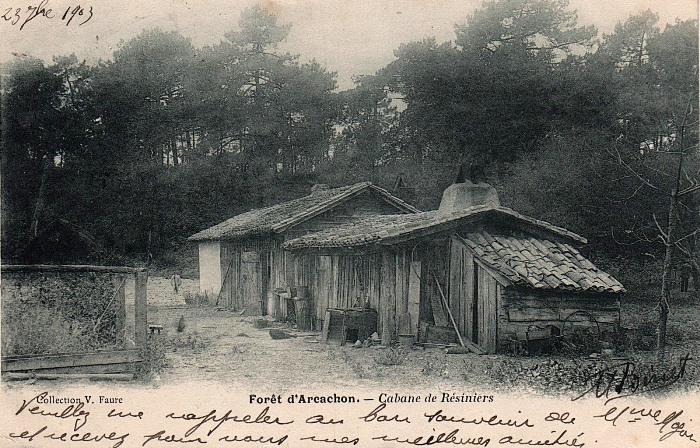 23 7bre 1903
Collection V. Faure
Forêt d'Arcachon. — Cabane de Résiniers
Veuillez me rappeler au bon souvenir de Mme
et recevez pour vous mes meilleures amitiés